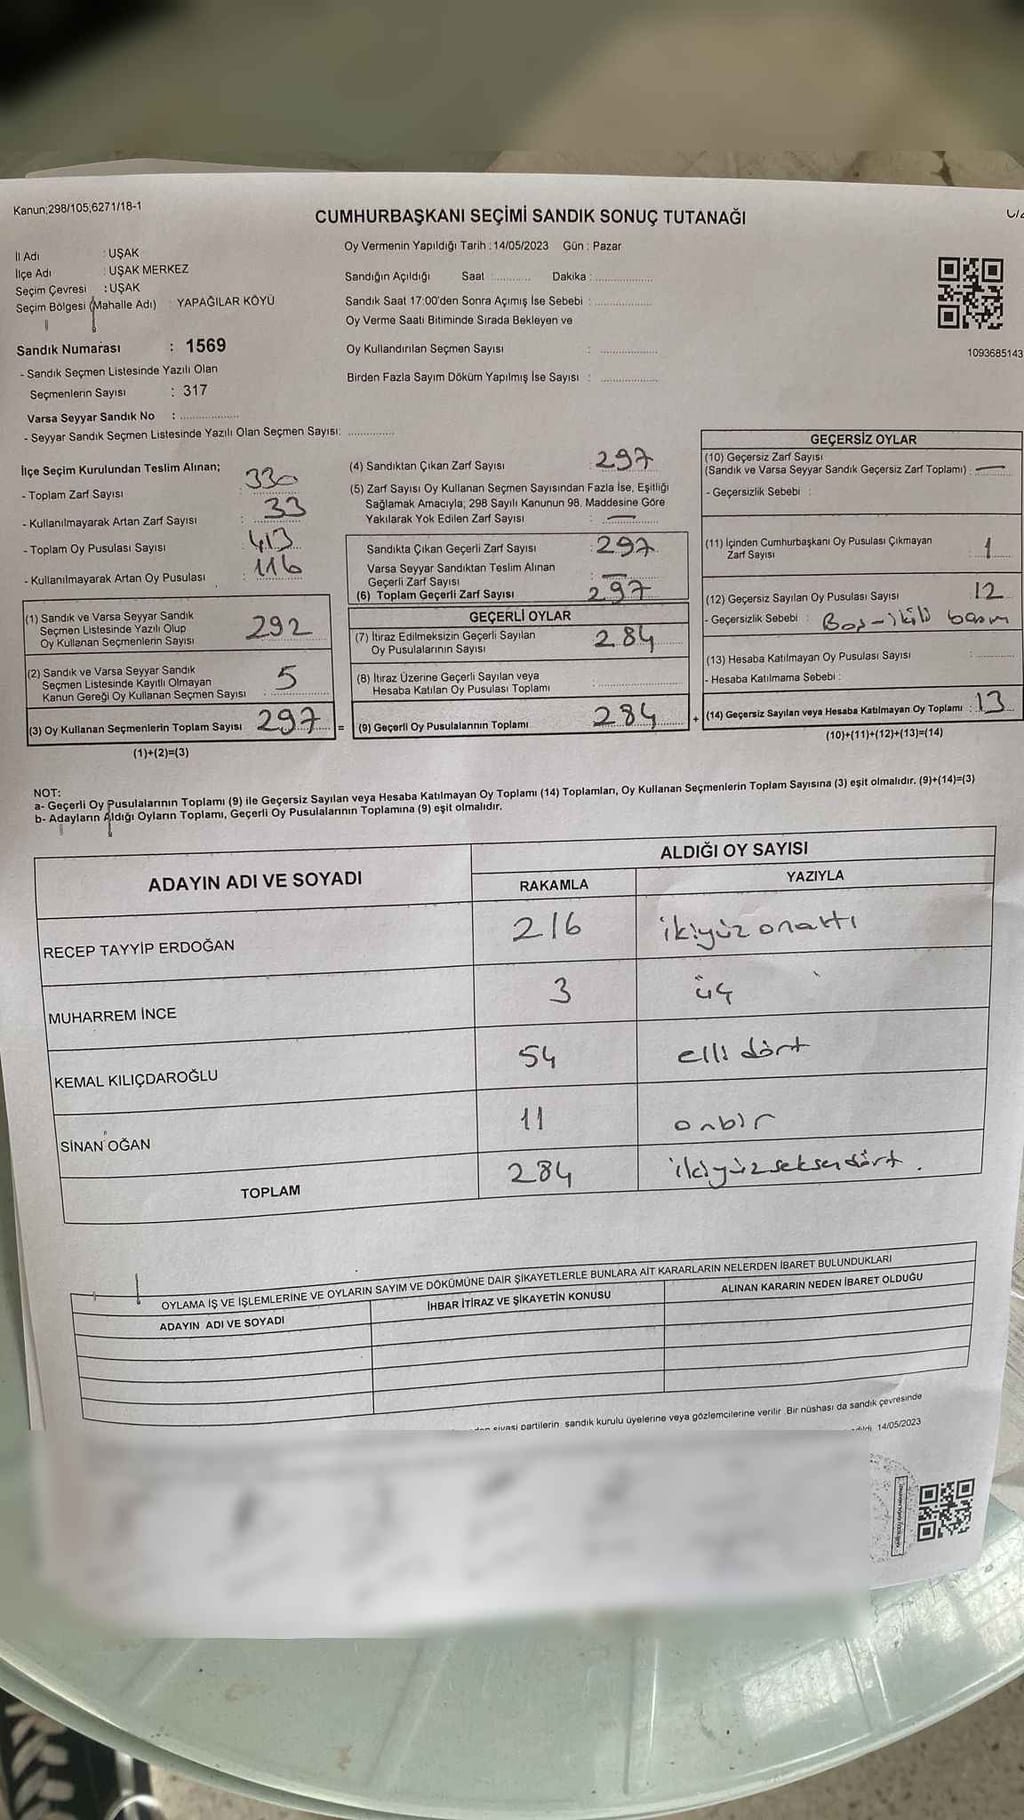 Kanun;298/105,6271/18-1
CUMHURBAŞKANI SEÇİMİ SANDIK SONUÇ TUTANAĞI
İl Adı : UŞAK
İlçe Adı : UŞAK MERKEZ
Seçim Çevresi : UŞAK
Seçim Bölgesi (Mahalle Adı) YAPAĞILAR KÖYÜ
Sandık Numarası : 1569
- Sandık Seçmen Listesinde Yazılı Olan
Seçmenlerin Sayısı : 317
Varsa Seyyar Sandık No : ................
- Seyyar Sandık Seçmen Listesinde Yazılı Olan Seçmen Sayısı: ............
Oy Vermenin Yapıldığı Tarih : 14/05/2023 Gün : Pazar
Sandığın Açıldığı Saat ............ Dakika : ................
Sandık Saat 17:00'den Sonra Açımış İse Sebebi : ................
Oy Verme Saati Bitiminde Sırada Bekleyen ve
Oy Kullandırılan Seçmen Sayısı : ................
Birden Fazla Sayım Döküm Yapılmış İse Sayısı : ................
1093685143
İlçe Seçim Kurulundan Teslim Alınan;
- Toplam Zarf Sayısı : 330
- Kullanılmayarak Artan Zarf Sayısı : 33
- Toplam Oy Pusulası Sayısı : 413
- Kullanılmayarak Artan Oy Pusulası : 116
(1) Sandık ve Varsa Seyyar Sandık
Seçmen Listesinde Yazılı Olup
Oy Kullanan Seçmenlerin Sayısı 292
(2) Sandık ve Varsa Seyyar Sandık
Seçmen Listesinde Kayıtlı Olmayan
Kanun Gereği Oy Kullanan Seçmen Sayısı 5
(3) Oy Kullanan Seçmenlerin Toplam Sayısı 297
(1)+(2)=(3)
(4) Sandıktan Çıkan Zarf Sayısı : 297
(5) Zarf Sayısı Oy Kullanan Seçmen Sayısından Fazla İse, Eşitliği
Sağlamak Amacıyla; 298 Sayılı Kanunun 98. Maddesine Göre
Yakılarak Yok Edilen Zarf Sayısı : —
Sandıkta Çıkan Geçerli Zarf Sayısı : 297
Varsa Seyyar Sandıktan Teslim Alınan
Geçerli Zarf Sayısı : —
(6) Toplam Geçerli Zarf Sayısı 297
GEÇERLİ OYLAR
(7) İtiraz Edilmeksizin Geçerli Sayılan
Oy Pusulalarının Sayısı 284
(8) İtiraz Üzerine Geçerli Sayılan veya
Hesaba Katılan Oy Pusulası Toplamı
= (9) Geçerli Oy Pusulalarının Toplamı 284 +
GEÇERSİZ OYLAR
(10) Geçersiz Zarf Sayısı
(Sandık ve Varsa Seyyar Sandık Geçersiz Zarf Toplamı) . —
- Geçersizlik Sebebi :
(11) İçinden Cumhurbaşkanı Oy Pusulası Çıkmayan
Zarf Sayısı 1
(12) Geçersiz Sayılan Oy Pusulası Sayısı 12
- Geçersizlik Sebebi : Boş-ikili basım
(13) Hesaba Katılmayan Oy Pusulası Sayısı
- Hesaba Katılmama Sebebi :
(14) Geçersiz Sayılan veya Hesaba Katılmayan Oy Toplamı : 13
(10)+(11)+(12)+(13)=(14)
NOT:
a- Geçerli Oy Pusulalarının Toplamı (9) ile Geçersiz Sayılan veya Hesaba Katılmayan Oy Toplamı (14) Toplamları, Oy Kullanan Seçmenlerin Toplam Sayısına (3) eşit olmalıdır. (9)+(14)=(3)
b- Adayların Aldığı Oyların Toplamı, Geçerli Oy Pusulalarının Toplamına (9) eşit olmalıdır.
ADAYIN ADI VE SOYADI
ALDIĞI OY SAYISI
RAKAMLA YAZIYLA
RECEP TAYYİP ERDOĞAN 216 ikiyüzonaltı
MUHARREM İNCE 3 üç
KEMAL KILIÇDAROĞLU 54 elli dört
SİNAN OĞAN 11 onbir
TOPLAM 284 ikiyüzseksendört.
OYLAMA İŞ VE İŞLEMLERİNE VE OYLARIN SAYIM VE DÖKÜMÜNE DAİR ŞİKAYETLERLE BUNLARA AİT KARARLARIN NELERDEN İBARET BULUNDUKLARI
ADAYIN ADI VE SOYADI İHBAR İTİRAZ VE ŞİKAYETİN KONUSU ALINAN KARARIN NEDEN İBARET OLDUĞU
siyasi partilerin sandık kurulu üyelerine veya gözlemcilerine verilir Bir nüshası da sandık çevresinde
14/05/2023